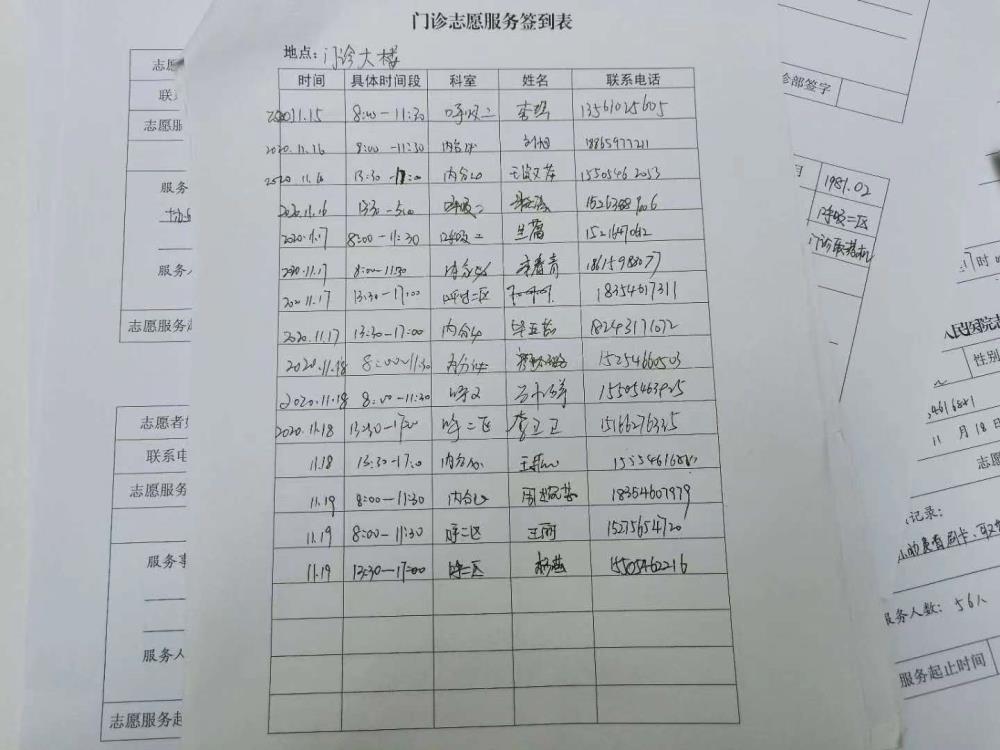 门诊志愿服务签到表
地点：门诊大楼
时间 具体时间段 科室 姓名 联系电话
2020.11.15 8:00－11:30 呼吸二 13561025605
2020.11.16 8:00－11:30 内分泌 18865977211
2020.11.16 13:30－17:00 内分泌 15505462053
2020.11.16 13:30－5:00 呼吸二
2020.11.17 8:00－11:30 呼吸二
2020.11.17 8:00－11:30 内分泌 18615988077
2020.11.17 13:30－17:00 呼吸二区 18354617311
2020.11.17 13:30－17:00 内分泌 18243171072
2020.11.18 8:00－11:30 内分泌 15254660503
2020.11.18 8:00－11:30 呼二 15505463925
2020.11.18 13:30－17:00 呼二区 李卫卫 15166276335
11.18 13:30－17:00 内分泌
11.19 8:00－11:30 内分泌 18354607979
11.19 8:00－11:30 呼二区 王丽 15275654720
11.19 13:30－17:00 呼二区 杨燕 15505462216
志愿
联系
志愿服
服务
服务人
志愿服务起
志愿者姓
联系电
志愿服务
服务事
服务人
志愿服务起
诊部签字
1981.02
呼吸二区
门诊取药机
人民医院志
性别
11月18日
志愿
记录：
服务人数：56人
服务起止时间